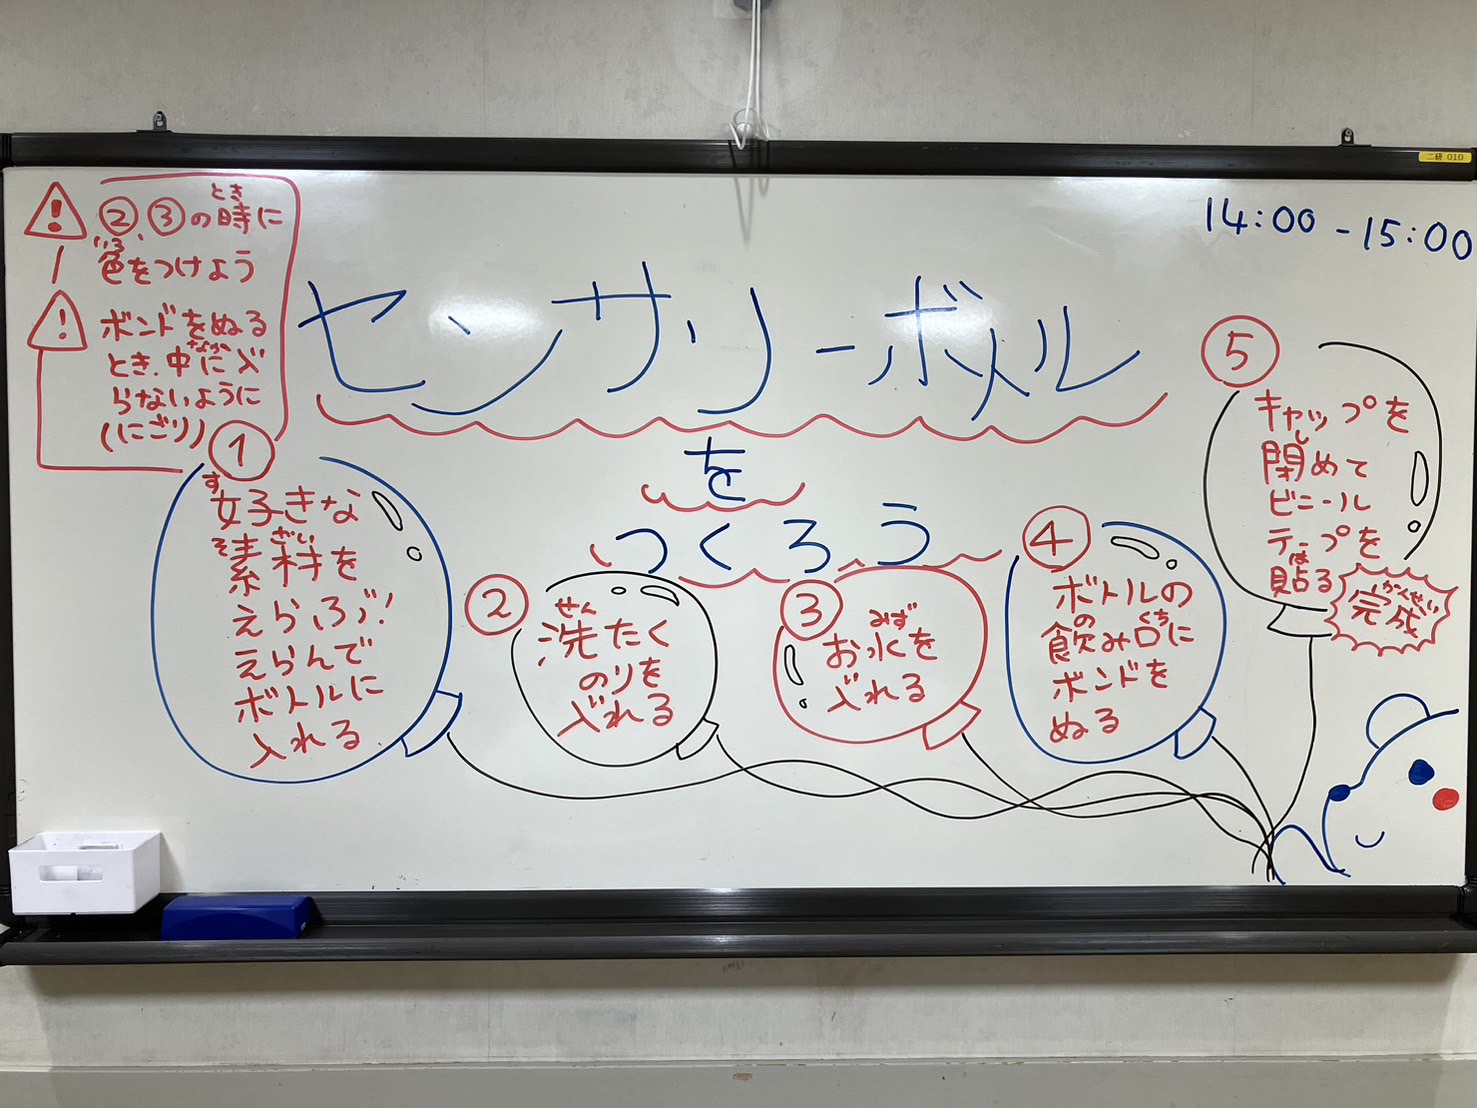 二研 010
14:00 - 15:00
②③の時に
とき
色をつけよう
いろ
ボンドをぬる
とき.中に入
なか
らないように
(にごり)
センサリーボトル
を
つくろう
①
好きな
す
素材を
そざい
えらぶ!
えらんで
ボトルに
入れる
②
洗たく
せん
のりを
入れる
③
お水を
みず
入れる
④
ボトルの
飲み口に
の くち
ボンドを
ぬる
⑤
キャップを
閉めて
し
ビニール
テープを
貼る
は
完成
かんせい